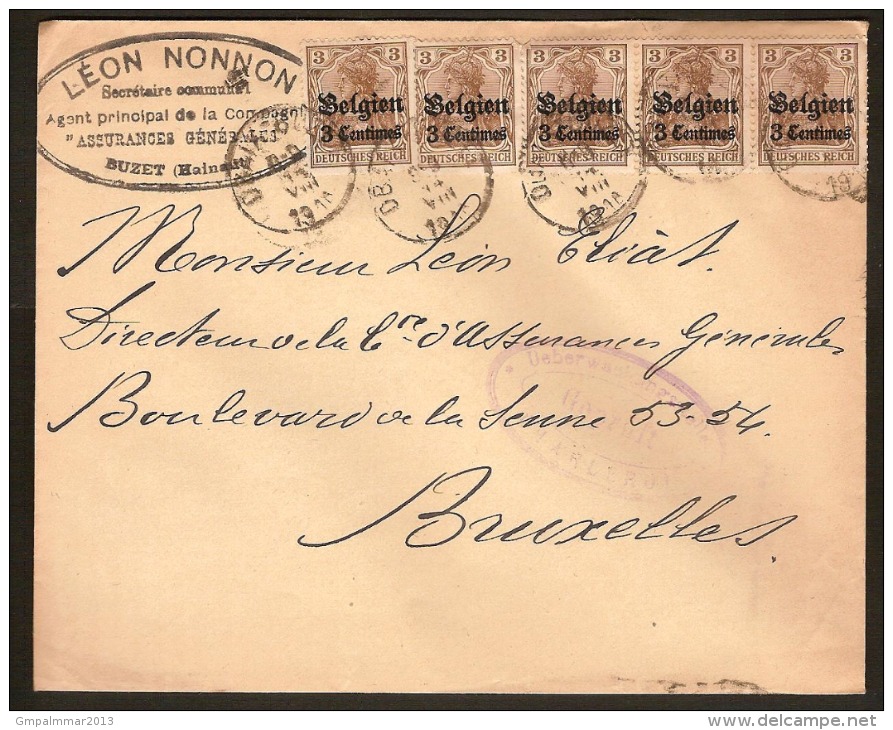 LÉON NONNON
Secrétaire communal
Agent principal de la Compagnie
"ASSURANCES GÉNÉRALES"
BUZET (Hainaut)
3 3
Belgien
3 Centimes
DEUTSCHES REICH
3 3
Belgien
3 Centimes
DEUTSCHES REICH
3 3
Belgien
3 Centimes
DEUTSCHES REICH
3 3
Belgien
3 Centimes
DEUTSCHES REICH
3 3
Belgien
3 Centimes
DEUTSCHES REICH
VIII
19
Monsieur Léon
Directeur de la Cre d'Assurances Générales
Boulevard de la Senne 53-54.
Bruxelles
Ueberwachungsstelle
CHARLEROI
Gmpalmmar2013
delcampe.net